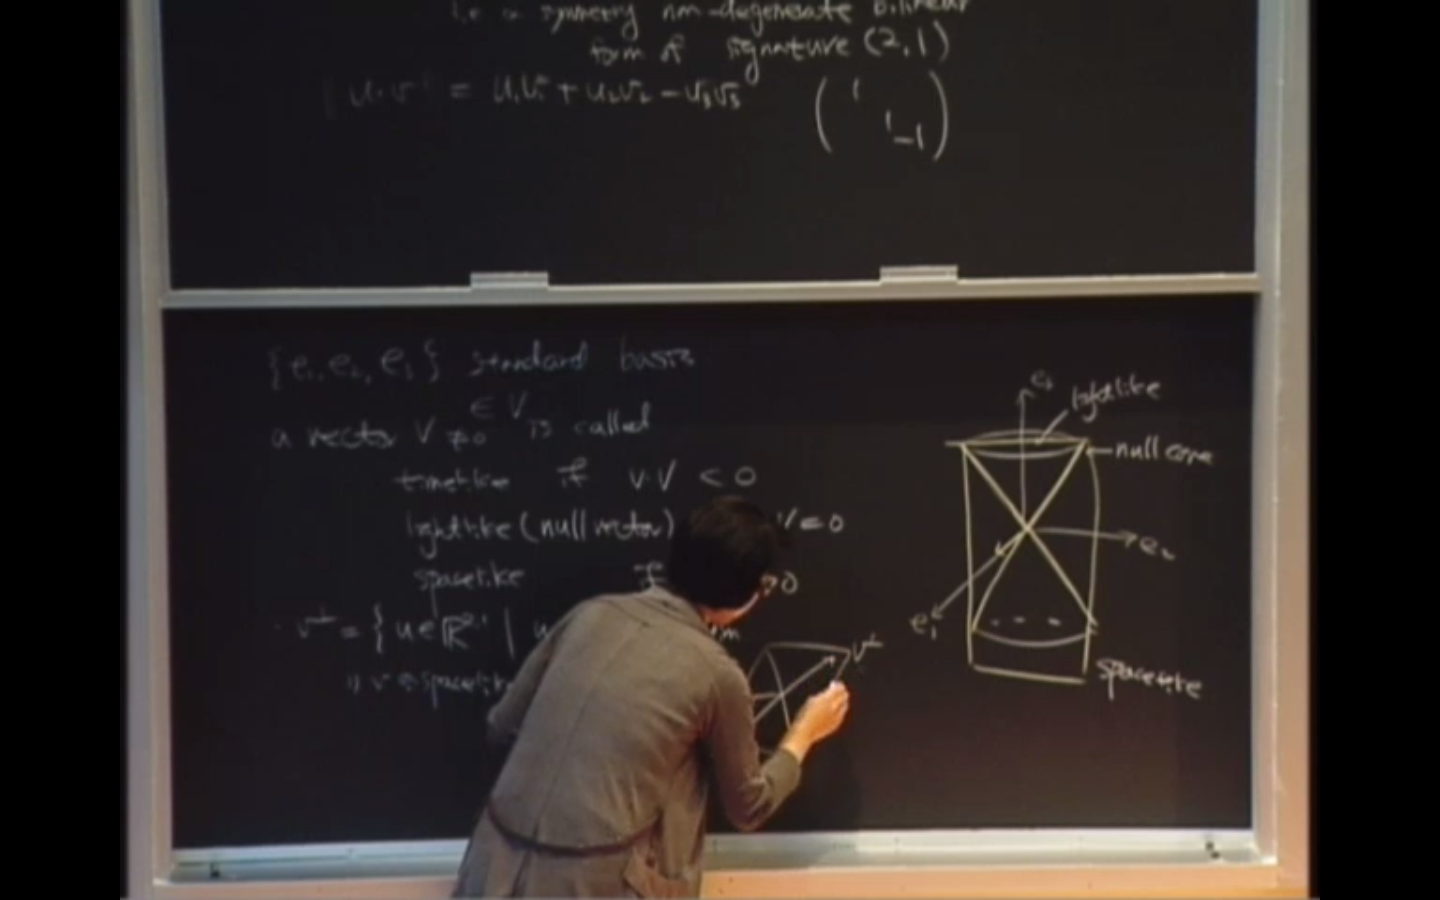 i.e a symmetry nm-degenerate bilinear
form of signature (2,1)
u·v = u₁v₁ + u₂v₂ - u₃v₃
( 1
1
-1 )
{e₁, e₂, e₃} standard basis
∈ V
a vector V ≠0 is called
timelike if v·v < 0
lightlike (null vector) v=0
spacelike if >0
v⊥ = { u∈ℝ²,¹ | u
v spacelike
v⊥
e₃
lightlike
null cone
e₂
e₁
spacelike